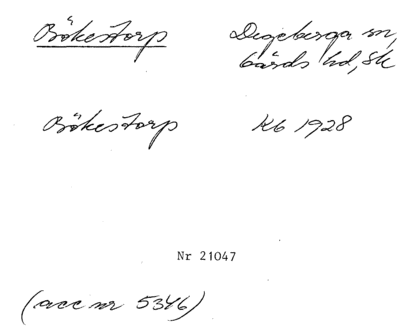 Bökestorp Degeberga sn,
Gärds hd, Sk
Bökestorp Kb 1928
Nr 21047
(acc nr 5346)